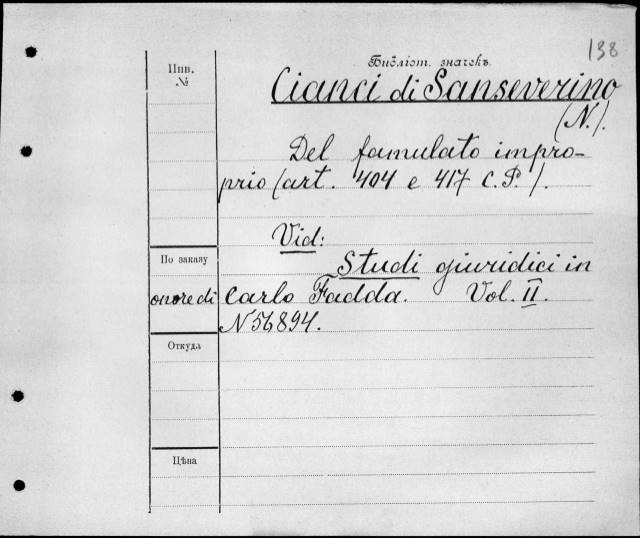 138
Библіот. значекъ
Инв.
№
Cianci di Sanseverino
(N.).
Del famulato impro-
prio (art. 404 e 417 C.P.).
Vid:
По заказу
Studi giuridici in
onore di Carlo Fadda. Vol. II.
N56894.
Откуда
Цѣна